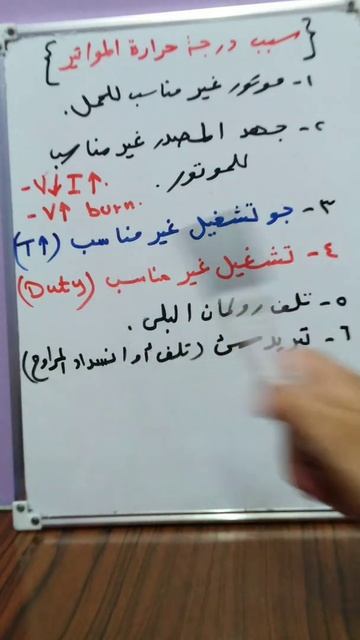 {سبب درجة حرارة المواتير}
١- موتور غير مناسب للحمل.
٢- جهد المصدر غير مناسب
للموتور.
- V↓ I↑.
- V↑ burn.
٣- جو تشغيل غير مناسب (T↑)
٤- تشغيل غير مناسب (Duty)
٥- تلف رولمان البلى.
٦- تبريد سئ (تلف أو انسداد المراوح)